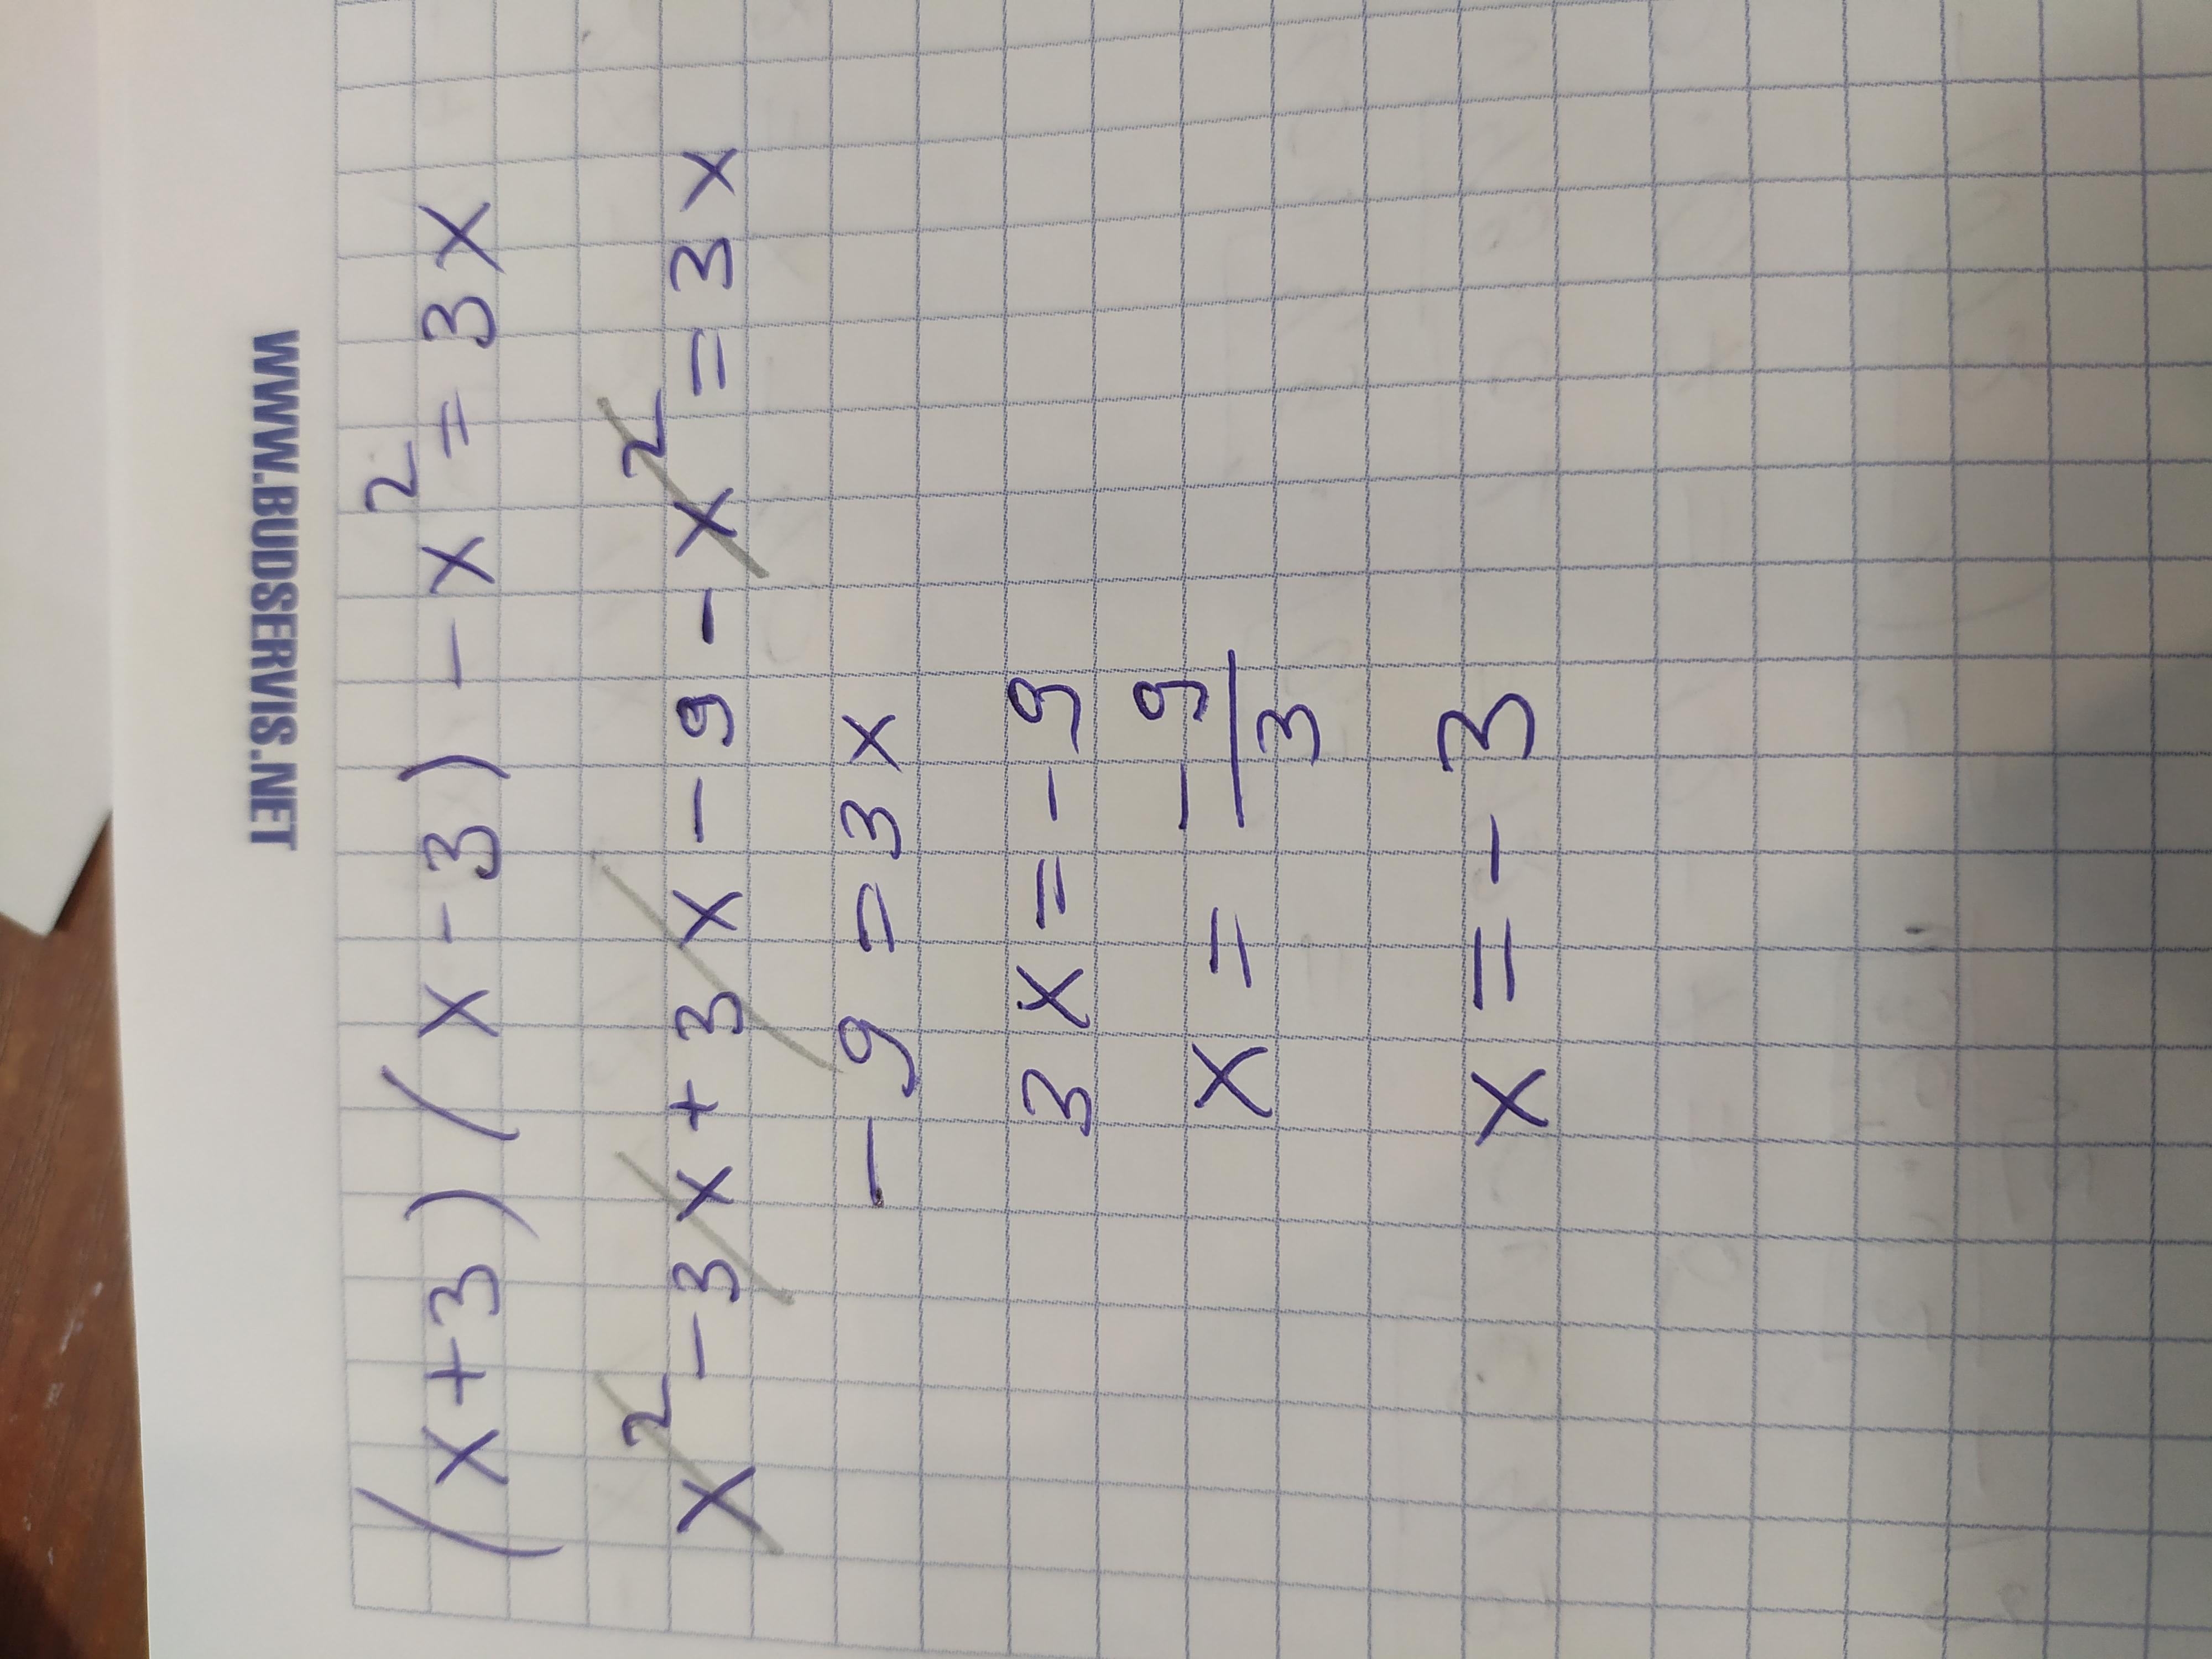 WWW.BUDSERVIS.NET
(x+3)(x-3)-x²=3x
x²-3x+3x-9-x²=3x
-9=3x
3x=-9
x=-9/3
x=-3